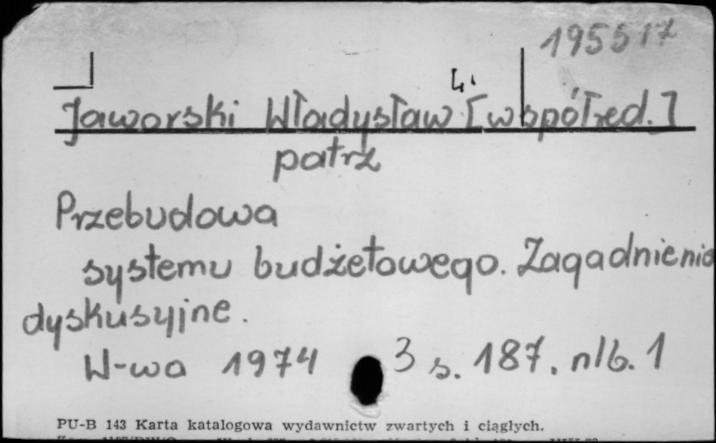 195517
Jaworski Władysław [współred.]
patrz
Przebudowa
systemu budżetowego. Zagadnienia
dyskusyjne.
W-wa 1974 3 s. 187, nlb. 1
PU-B 143 Karta katalogowa wydawnictw zwartych i ciągłych.